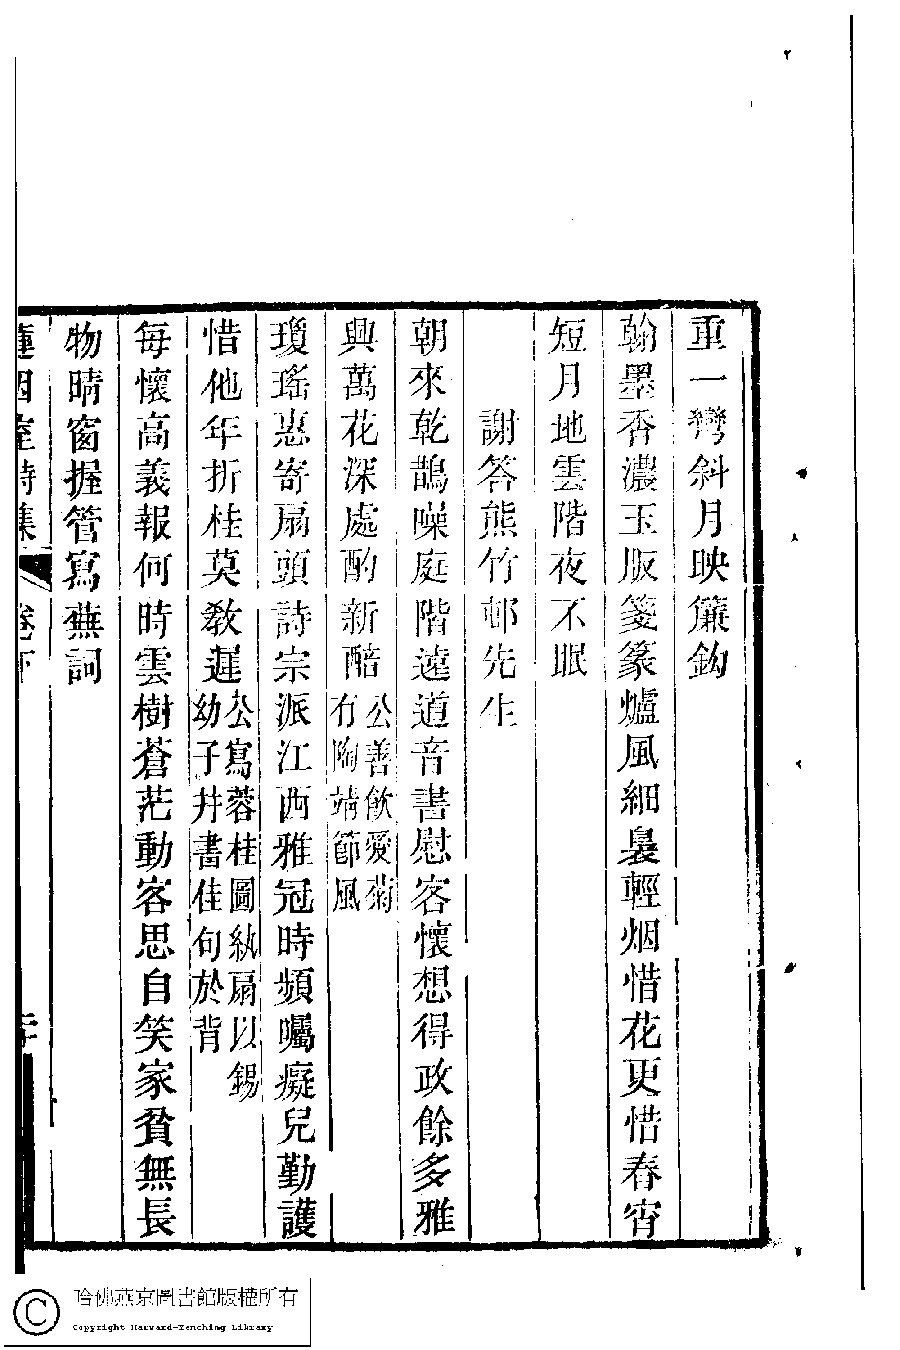 重一彎斜月映簾鈎
翰墨香濃玉版箋篆爐風細裊輕烟惜花更惜春宵
短月地雲階夜不眠
謝答熊竹邨先生
朝來乾鵲噪庭階遠道音書慰客懷想得政餘多雅
興萬花深處酌新醅公善飲愛菊有陶靖節風
瓊瑤惠寄扇頭詩宗派江西雅冠時頻囑癡兒勤護
惜他年折桂莫教遲公寫蓉桂圖紈扇以錫幼子幷書佳句於背
每懷高義報何時雲樹蒼茫動客思自笑家貧無長
物晴窗握管寫蕪詞
室詩集 卷下
哈佛燕京圖書館版權所有
Copyright Harvard-Yenching Library